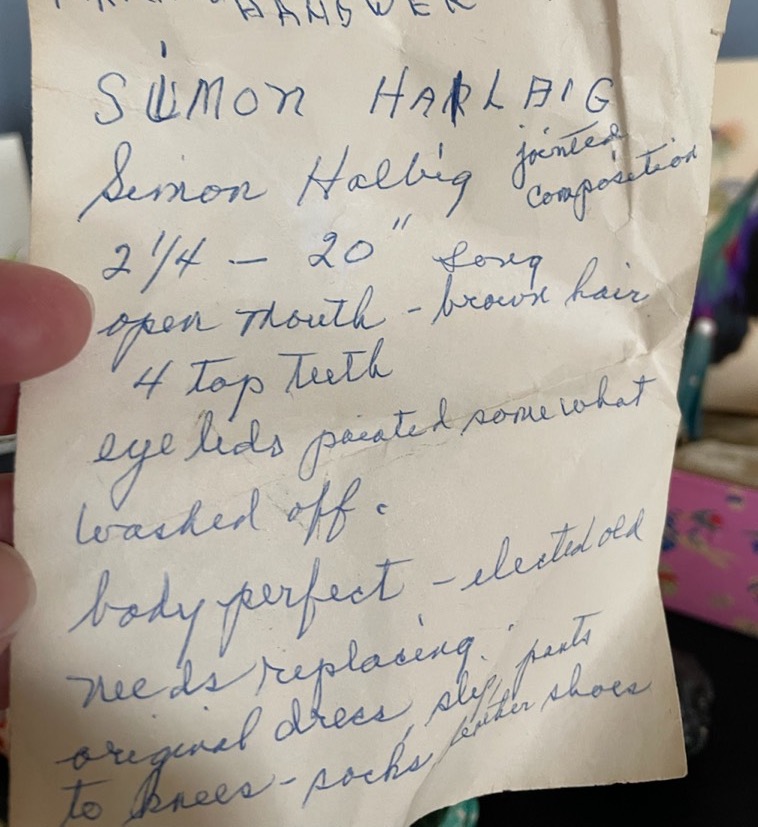 HANDWER
SIMON HARLBIG
Simon Halbig jointed
composition
2 1/4 — 20" long
open mouth - brown hair
4 top teeth
eye lids painted somewhat
washed off.
body perfect - old
needs replacing.
original dress, slip, pants
to knees - socks leather shoes